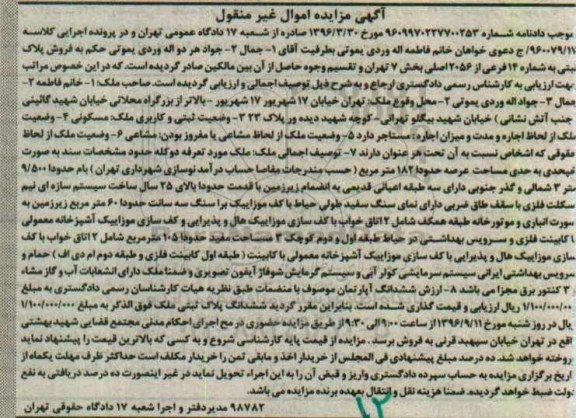 آگهی مزایده اموال غیر منقول
بموجب دادنامه شماره ۹۶۰۹۹۷۰۲۳۷۷۰۰۳۵۳ مورخ ۱۳۹۶/۳/۳۰ صادره از شعبه ۱۷ دادگاه عمومی تهران و در پرونده اجرایی کلاسه
۹۶۰۰۷۹/۱۱/ج دعوی خواهان خانم فاطمه اله وردی یموتی بطرفیت آقای ۱- جمال ۲- جواد هر دو اله وردی یموتی حکم به فروش پلاک
ثبتی به شماره ۱۴ فرعی از ۲۰۵۶ اصلی بخش ۷ تهران و تقسیم وجوه حاصل از آن بین مالکین صادر گردیده است. که در این خصوص مراتب
جهت ارزیابی به کارشناس رسمی دادگستری ارجاع و به شرح ذیل توصیف اجمالی و ارزیابی گردیده است. صاحب ملک: ۱- خانم فاطمه ۲-
جمال ۳- جواد اله وردی یموتی ۲- محل وقوع ملک: تهران خیابان ۱۷ شهریور ۱۷ شهریور - بالاتر از بزرگراه محلاتی خیابان شهید گائینی
جنب آتش نشانی) خیابان شهید بیگلو تهرانی - کوچه شهید دیده ور پلاک ۲۳ ۳- وضعیت ثبتی و کاربری ملک: مسکونی ۴- وضعیت
ملک از لحاظ اجاره و مدت و میزان اجاره: مستاجر دارد ۵- وضعیت ملک از لحاظ مشاعی یا مفروز بودن: مشاعی ۶- وضعیت ملک از لحاظ
حقوقی که اشخاص نسبت به آن تحت هر عنوان دارند ۷- توصیف اجمالی ملک: ملک مورد تعرفه دو کله حدود مشخصات سند به صورت
قیدی به حدی مساحت عرصه حدودا ۱۸۲ متر مربع (حسب مندرجات مفاصا حساب درآمد نوسازی شهرداری تهران) بام حدودا ۹/۵۰۰
متر ۳ شمالی و گذر جنوبی دارای سه طبقه اعیانی قدیمی به انضمام زیرزمین با قدمت حدودا بالای ۲۵ سال ساخت سیستم سازه ای نیم
سکلت فلزی با سقف طاق ضربی دارای نمای سنگ سفید طولی حیاط با کف موزاییک برا سنگ سه سانت حدودا ۶۰ متر مربع زیرزمین به
صورت انباری و موتورخانه طبقه همکف شامل ۲ اتاق خواب با کف سازی موزاییک هال و پذیرایی و کف سازی موزاییک آشپزخانه معمولی
با کابینت فلزی و سرویس بهداشتی در حیاط طبقه اول و دوم کوچک ۳ مساحت مفید حدودا ۱۰۵ متر مربع شامل ۲ اتاق خواب با کف
سازی موزاییک هال و پذیرایی با کف سازی موزاییک آشپزخانه معمولی با کابینت (طبقه اول کابینت فلزی و طبقه دوم ام دی اف) حمام و
سرویس بهداشتی ایرانی سیستم سرمایشی کولر آبی و سیستم گرمایش شوفاژ آیفون تصویری و ضمنا ملک دارای انشعابات آب و گاز مشاء
۳ کنتور برق مجزا می باشد ۸- ارزش ششدانگ آپارتمان موصوف با منضمات طبق نظریه هیات کارشناسان رسمی دادگستری به مبلغ
ریال ارزیابی و قیمت گذاری شده است. بنابراین مقرر گردید ششدانگ پلاک ثبتی ملک فوق الذکر به مبلغ ۱/۱۰۰/۰۰۰/۰۰۰
ریال در روز شنبه مورخ ۱۳۹۶/۹/۱۱ از ساعت ۹:۰۰ الی ۹:۳۰ از طریق مزایده حضوری در مح اجرای احکام مدنی مجتمع قضایی شهید بهشتی
واقع در تهران خیابان سپهبد قرنی به فروش برسد. مزایده از قیمت پایه کارشناسی شروع و به کسی که بالاترین قیمت را پیشنهاد نماید
فروخته خواهد شد. ده درصد مبلغ پیشنهادی فی المجلس از خریدار اخذ و مابقی ثمن را خریدار مکلف است حداکثر ظرف مهلت یکماه از
تاریخ برگزاری مزایده به حساب سپرده دادگستری واریز و قبض آن را به این اجراء تحویل نماید در غیر اینصورت ده درصد دریافتی به نفع
دولت ضبط خواهد گردید. ضمنا هزینه نقل و انتقال بعهده برنده مزایده می باشد.
۹۸۷۸۲ مدیر دفتر و اجرا شعبه ۱۷ دادگاه حقوقی تهران
۱۲